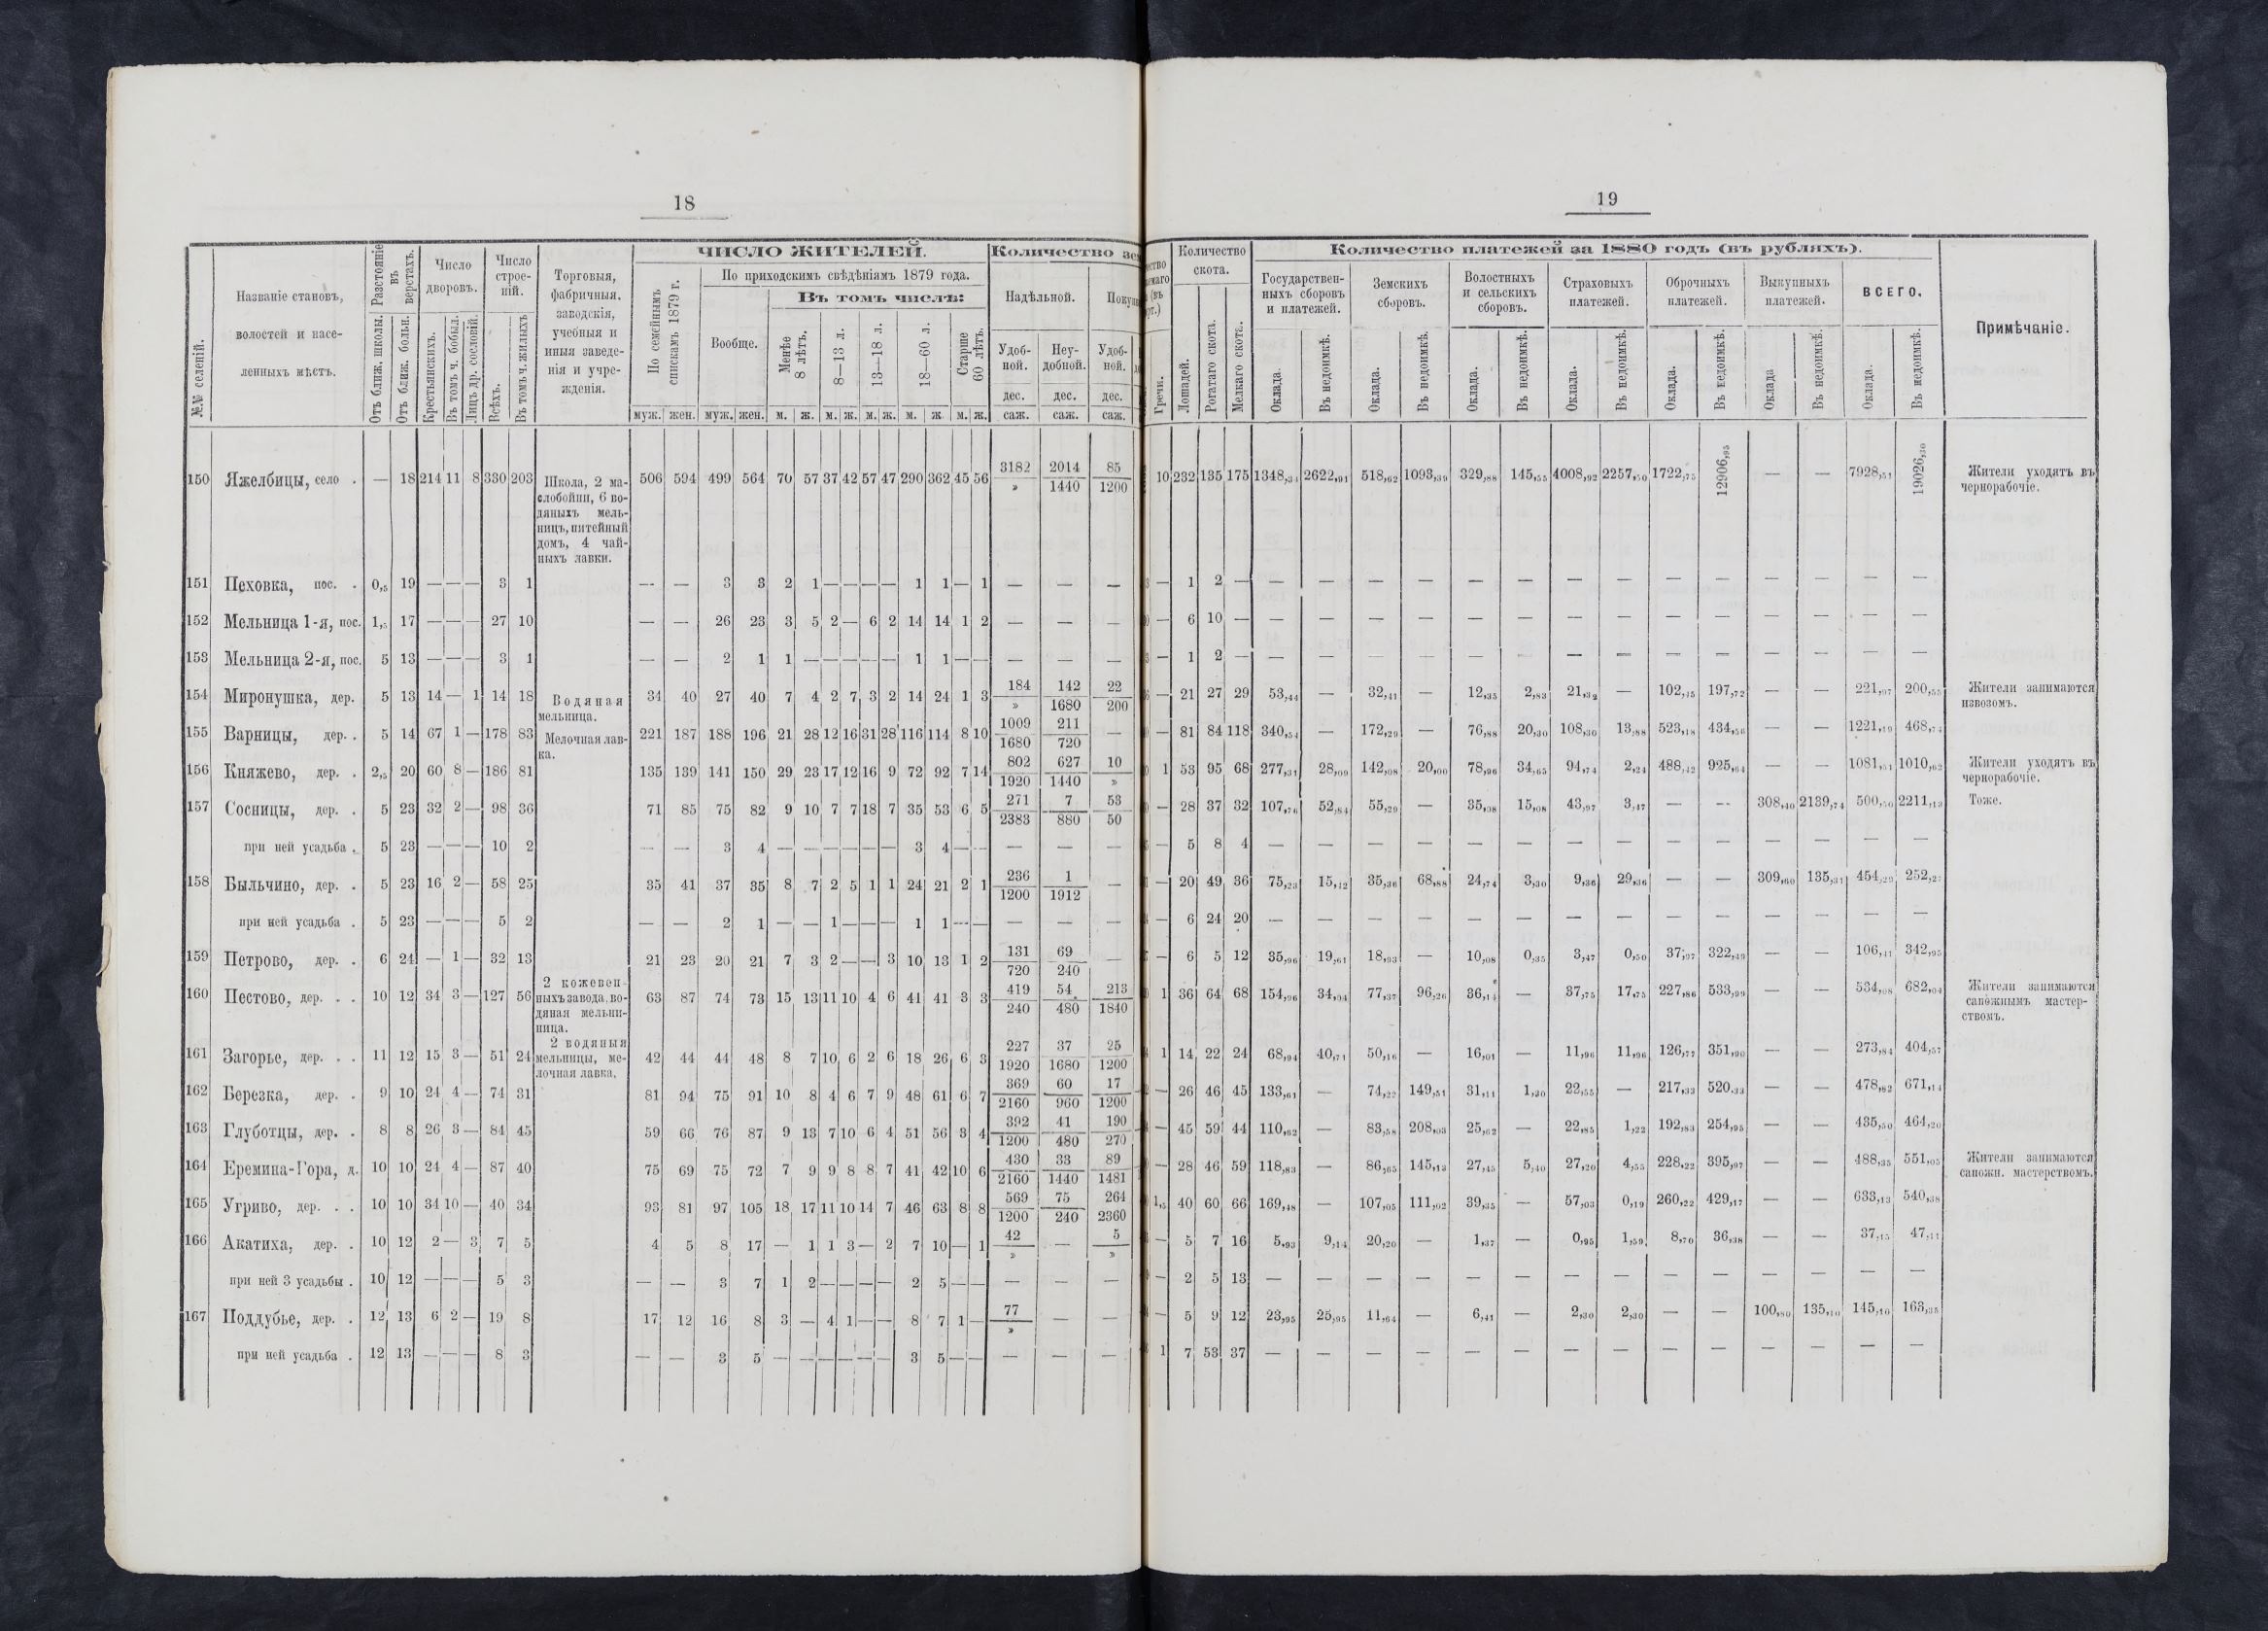 18
№№ селеній.
Названіе становъ, волостей и населенныхъ мѣстъ.
Разстояніе въ верстахъ.
Отъ ближ. школы.
Отъ ближ. больн.
Число дворовъ.
Крестьянскихъ.
Въ томъ ч. бобыл.
Лицъ др. сословій.
Число строеній.
Всѣхъ.
Въ томъ ч. жилыхъ
Торговыя, фабричныя, заводскія, учебныя и иныя заведенія и учрежденія.
ЧИСЛО ЖИТЕЛЕЙ.
По семейнымъ спискамъ 1879 г.
По приходскимъ свѣдѣніямъ 1879 года.
Вообще.
Въ томъ числѣ:
Менѣе 8 лѣтъ.
8—13 л.
13—18 л.
18—60 л.
Старше 60 лѣтъ.
муж. жен. муж. жен. м. ж. м. ж. м. ж. м. ж. м. ж.
Количество зе
Надѣльной.
Покуп
Удобной.
Неудобной.
Удобной.
дес. дес. дес.
саж. саж. саж.
150 Яжелбицы, село . — 18 214 11 8 330 203 Школа, 2 маслобойни, 6 водяныхъ мельницъ, питейный домъ, 4 чайныхъ лавки. 506 594 499 564 70 57 37 42 57 47 290 362 45 56 3182/» 2014/1440 85/1200
151 Пеховка, пос. . 0,5 19 — — — 3 1 — — 3 3 2 1 — — — — 1 1 — 1 — — —
152 Мельница 1-я, пос. 1,5 17 — — — 27 10 — — 26 23 3 5 2 — 6 2 14 14 1 2 — — —
153 Мельница 2-я, пос. 5 13 — — — 3 1 — — 2 1 1 — — — — — 1 1 — — — — —
154 Миронушка, дер. 5 13 14 — 1 14 18 Водяная мельница. 34 40 27 40 7 4 2 7 3 2 14 24 1 3 184/» 142/1680 22/200
155 Варницы, дер. . 5 14 67 1 — 178 83 Мелочная лавка. 221 187 188 196 21 28 12 16 31 28 116 114 8 10 1009/1680 211/720 —
156 Княжево, дер. . 2,5 20 60 8 — 186 81 135 139 141 150 29 23 17 12 16 9 72 92 7 14 802/1920 627/1440 10/»
157 Сосницы, дер. . 5 23 32 2 — 98 36 71 85 75 82 9 10 7 7 18 7 35 53 6 5 271/2383 7/880 53/50
при ней усадьба . 5 23 — — — 10 2 — — 3 4 — — — — — — 3 4 — — — — —
158 Быльчино, дер. . 5 23 16 2 — 58 25 35 41 37 35 8 7 2 5 1 1 24 21 2 1 236/1200 1/1912 —
при ней усадьба . 5 23 — — — 5 2 — — 2 1 — — 1 — — — 1 1 — — — — —
159 Петрово, дер. . 6 24 — 1 — 32 13 21 23 20 21 7 3 2 — — 3 10 13 1 2 131/720 69/240 —
160 Пестово, дер. . . 10 12 34 3 — 127 56 2 кожевенныхъ завода, водяная мельниница. 63 87 74 73 15 13 11 10 4 6 41 41 3 3 419/240 54/480 213/1840
161 Загорье, дер. . . 11 12 15 3 — 51 24 2 водяныя мельницы, мелочная лавка. 42 44 44 48 8 7 10 6 2 6 18 26 6 3 227/1920 37/1680 25/1200
162 Березка, дер. . 9 10 24 4 — 74 31 81 94 75 91 10 8 4 6 7 9 48 61 6 7 369/2160 60/960 17/1200
163 Глуботцы, дер. . 8 8 26 3 — 84 45 59 66 76 87 9 13 7 10 6 4 51 56 3 4 392/1200 41/480 190/270
164 Еремина-Гора, д. 10 10 24 4 — 87 40 75 69 75 72 7 9 9 8 8 7 41 42 10 6 430/2160 33/1440 89/1481
165 Угриво, дер. . . 10 10 34 10 — 40 34 93 81 97 105 18 17 11 10 14 7 46 63 8 8 569/1200 75/240 264/2360
166 Акатиха, дер. . 10 12 2 — 3 7 5 4 5 8 17 — 1 1 3 — 2 7 10 — 1 42/» — 5/»
при ней 3 усадьбы . 10 12 — — — 5 3 — — 3 7 1 2 — — — — 2 5 — — — — —
167 Поддубье, дер. . 12 13 6 2 — 19 8 17 12 16 8 3 — 4 1 — — 8 7 1 — 77/» — —
при ней усадьба . 12 13 — — — 8 3 — — 3 5 — — — — — — 3 5 — — — — —
19
Гречи.
Количество скота.
Лошадей.
Рогатаго скота.
Мелкаго скота.
Количество платежей за 1880 годъ (въ рубляхъ).
Государственныхъ сборовъ и платежей.
Земскихъ сборовъ.
Волостныхъ и сельскихъ сборовъ.
Страховыхъ платежей.
Оброчныхъ платежей.
Выкупныхъ платежей.
ВСЕГО.
Оклада. Въ недоимкѣ. Оклада. Въ недоимкѣ. Оклада. Въ недоимкѣ. Оклада. Въ недоимкѣ. Оклада. Въ недоимкѣ. Оклада Въ недоимкѣ. Оклада. Въ недоимкѣ.
Примѣчаніе.
10 232 135 175 1348,34 2622,91 518,62 1093,39 329,88 145,55 4008,92 2257,50 1722,75 12906,95 — — 7928,51 19026,30 Жители уходятъ въ чернорабочіе.
— 1 2 — — — — — — — — — — — — — — —
— 6 10 — — — — — — — — — — — — — — —
— 1 2 — — — — — — — — — — — — — — —
— 21 27 29 53,44 — 32,41 — 12,35 2,83 21,32 — 102,45 197,72 — — 221,97 200,55 Жители занимаются извозомъ.
— 81 84 118 340,54 — 172,29 — 76,88 20,30 108,30 13,88 523,18 434,56 — — 1221,19 468,74
1 53 95 68 277,31 28,09 142,08 20,00 78,96 34,65 94,74 2,24 488,42 925,64 — — 1081,51 1010,62 Жители уходятъ въ чернорабочіе.
— 28 37 32 107,76 52,84 55,29 — 35,08 15,08 43,97 3,47 — — 308,40 2139,74 500,50 2211,13 Тоже.
— 5 8 4 — — — — — — — — — — — — — —
— 20 49 36 75,23 15,12 35,36 68,88 24,74 3,30 9,36 29,36 — — 309,60 135,31 454,29 252,2
— 6 24 20 — — — — — — — — — — — — — —
— 6 5 12 35,96 19,61 18,93 — 10,08 0,35 3,47 0,50 37,97 322,49 — — 106,41 342,95
1 36 64 68 154,96 34,04 77,37 96,26 36,14 — 37,75 17,75 227,86 533,99 — — 534,08 682,04 Жители занимаются сапожнымъ мастерствомъ.
1 14 22 24 68,94 40,71 50,16 — 16,01 — 11,96 11,96 126,77 351,90 — — 273,84 404,57
— 26 46 45 133,61 — 74,22 149,51 31,11 1,30 22,55 — 217,33 520,33 — — 478,82 671,14
— 45 59 44 110,62 — 83,58 208,03 25,62 — 22,85 1,22 192,83 254,95 — — 435,50 464,20
— 28 46 59 118,83 — 86,65 145,13 27,45 5,40 27,20 4,55 228,22 395,97 — — 488,35 551,05 Жители занимаются сапожн. мастерствомъ.
1,5 40 60 66 169,48 — 107,05 111,02 39,35 — 57,03 0,19 260,22 429,17 — — 633,13 540,38
— 5 7 16 5,93 9,14 20,20 — 1,37 — 0,95 1,59 8,70 36,38 — — 37,15 47,11
— 2 5 13 — — — — — — — — — — — — — —
— 5 9 12 23,95 25,95 11,64 — 6,41 — 2,30 2,30 — — 100,80 135,10 145,10 163,35
1 7 53 37 — — — — — — — — — — — — — —